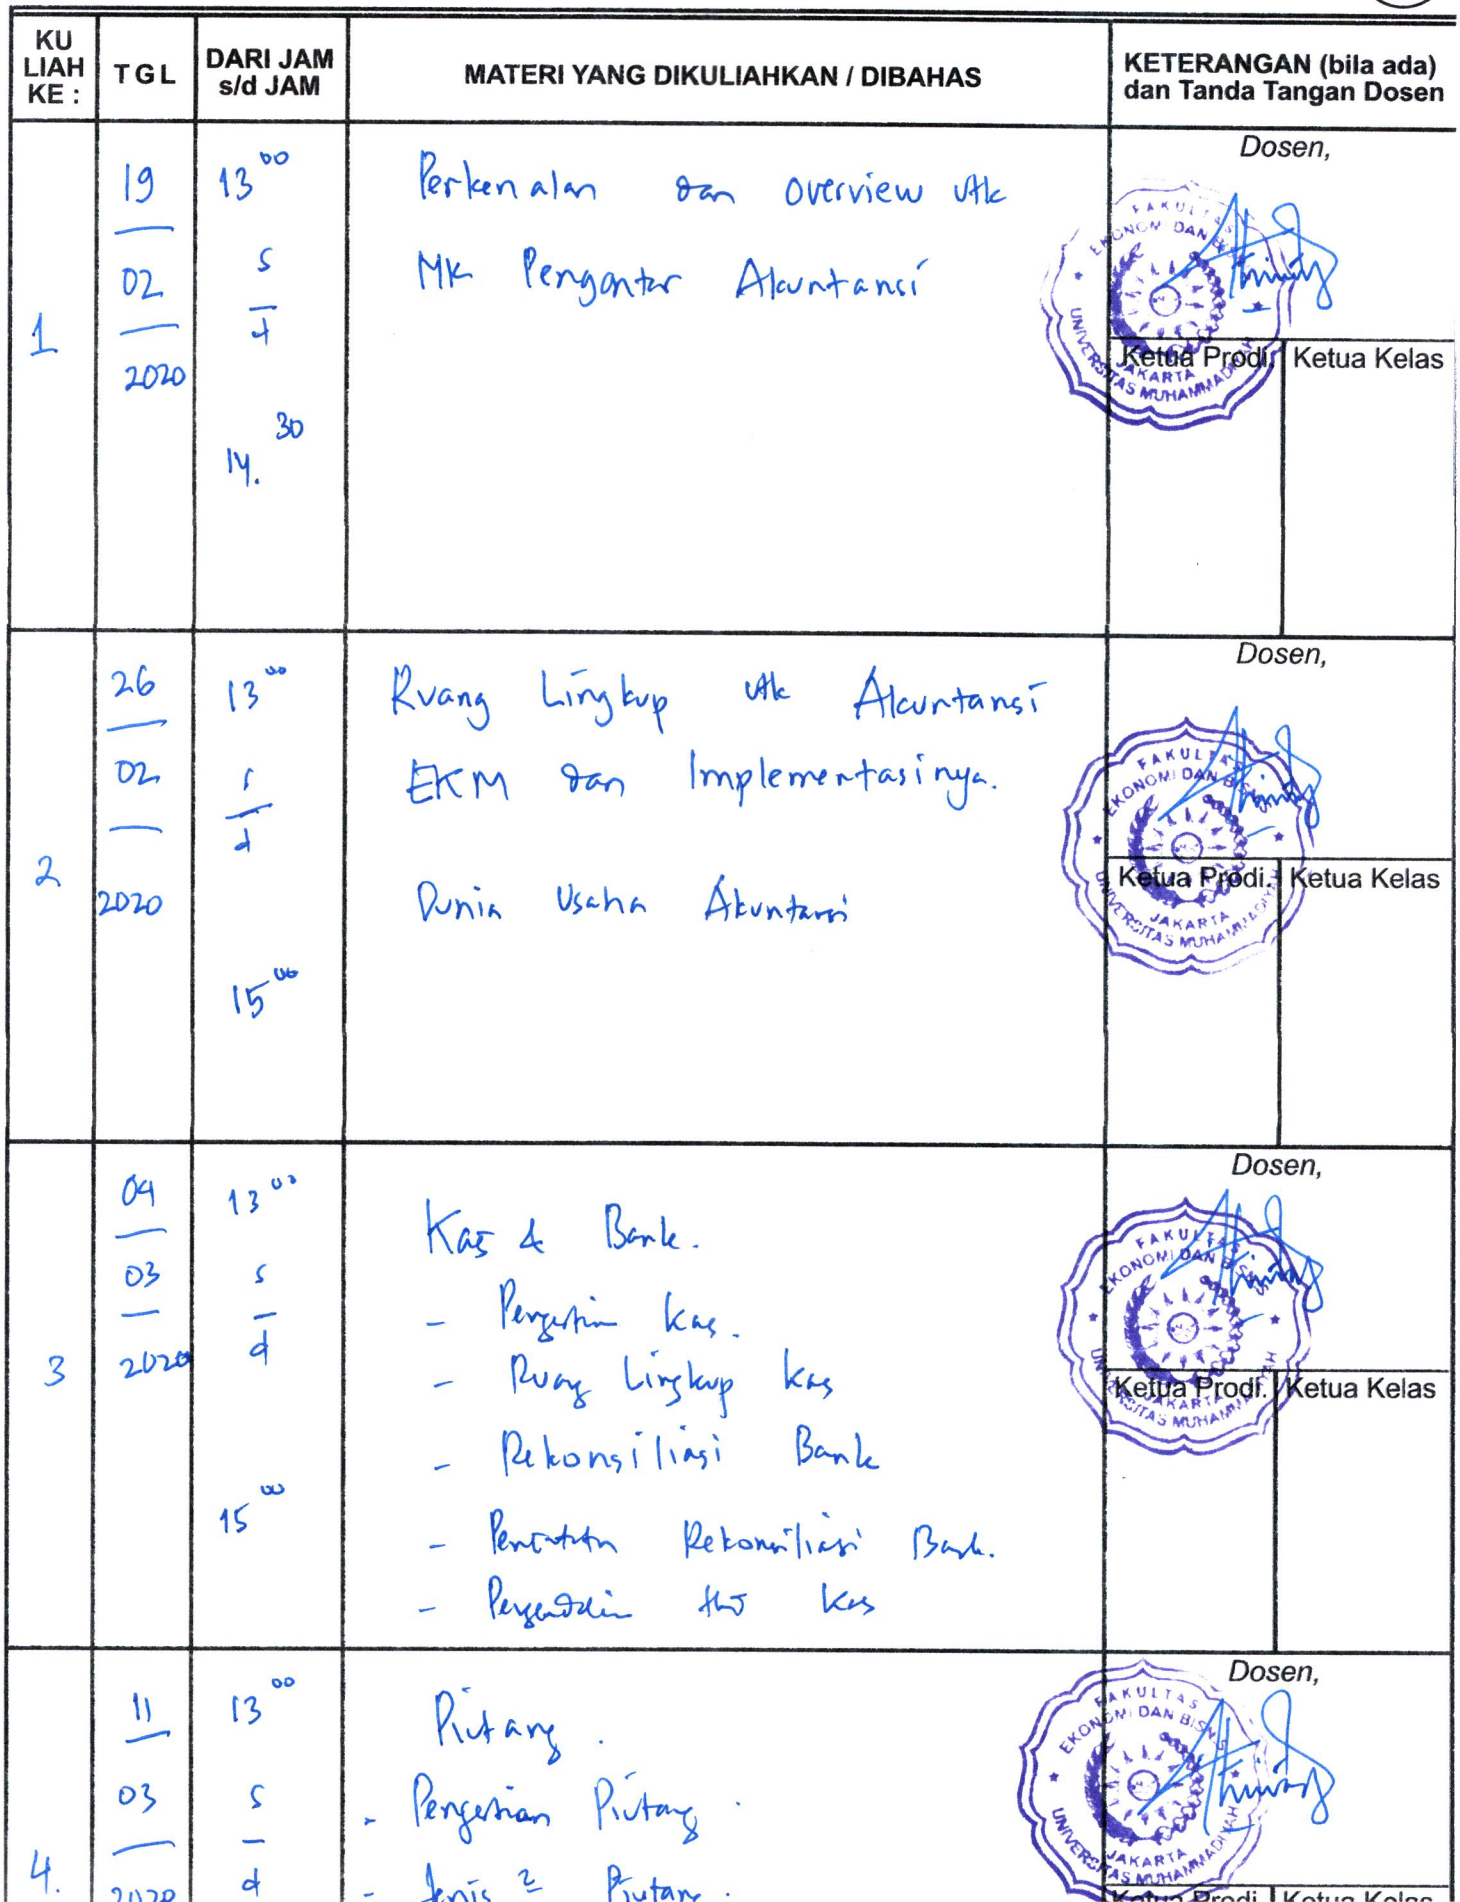 KU LIAH KE :
TGL
DARI JAM s/d JAM
MATERI YANG DIKULIAHKAN / DIBAHAS
KETERANGAN (bila ada) dan Tanda Tangan Dosen
1
19
02
2020
13 00
s
d
14. 30
Perkenalan dan overview utk
MK Pengantar Akuntansi
Dosen,
FAKULTAS
EKONOMI DAN BISNIS
UNIVERSITAS MUHAMMADIYAH
JAKARTA
Ketua Prodi.
Ketua Kelas
2
26
02
2020
13 00
s
d
15 00
Ruang Lingkup utk Akuntansi
EKM dan Implementasinya.
Dunia Usaha Akuntansi
Dosen,
FAKULTAS
EKONOMI DAN BISNIS
UNIVERSITAS MUHAMMADIYAH
JAKARTA
Ketua Prodi.
Ketua Kelas
3
04
03
2020
13 00
s
d
15 00
Kas & Bank.
- Pengertian Kas.
- Ruang Lingkup Kas
- Rekonsiliasi Bank
- Pencatatan Rekonsiliasi Bank.
- Kas
Dosen,
FAKULTAS
EKONOMI DAN BISNIS
UNIVERSITAS MUHAMMADIYAH
JAKARTA
Ketua Prodi.
Ketua Kelas
4.
11
03
2020
13 00
s
d
Piutang.
- Pengertian Piutang.
- Jenis 2 Piutang.
Dosen,
FAKULTAS
EKONOMI DAN BISNIS
UNIVERSITAS MUHAMMADIYAH
JAKARTA
Ketua Prodi.
Ketua Kelas